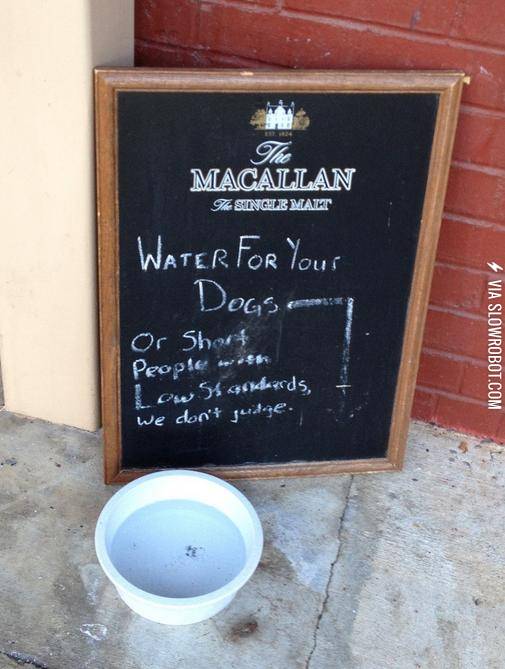 EST. 1824
The
MACALLAN
The SINGLE MALT
WATER FOR Your
DOGS
Or Short
People with
Low Standards,
we don't judge.
VIA SLOWROBOT.COM